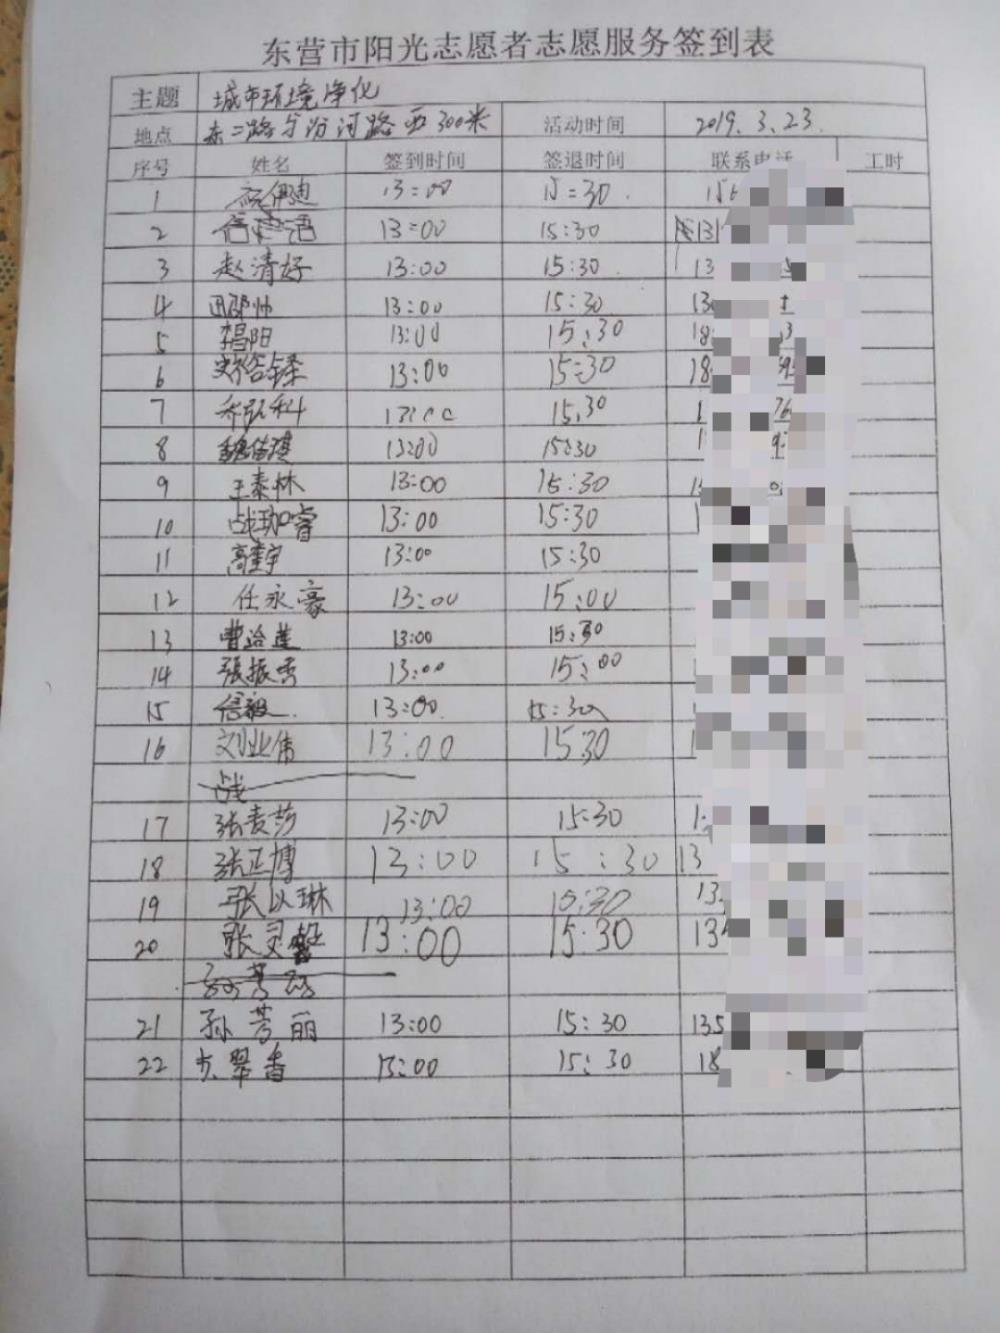 东营市阳光志愿者志愿服务签到表
主题 城市环境净化
地点 东二路与汾河路西300米 活动时间 2019.3.23.
序号 姓名 签到时间 签退时间 联系电话 工时
1 13:00 15:30. 156
2 13:00 15:30 131
3 赵清好 13:00 15:30. 13
4 田邵帅 13:00 15:30 130
5 13:00 15:30 18 3
6 13:00 15:30 18
7 乔弘科 13:00 15:30 1 76
8 魏 13:00 15:30 1
9 王泰林 13:00 15:30 15
10 战珈睿 13:00 15:30
11 高 宇 13:00 15:30
12 任永豪 13:00 15:00
13 曹 莲 13:00 15:30
14 張振香 13:00 15:00
15 信毅 13:00 15:30
16 刘业伟 13:00 15:30
战
17 张麦莎 13:00 15:30 1
18 张正博 13:00 15:30 13
19 张以琳 13:00 15:30 13
20 张灵馨 13:00 15:30 13
21 孙芳丽 13:00 15:30 135
22 翠香 13:00 15:30 18